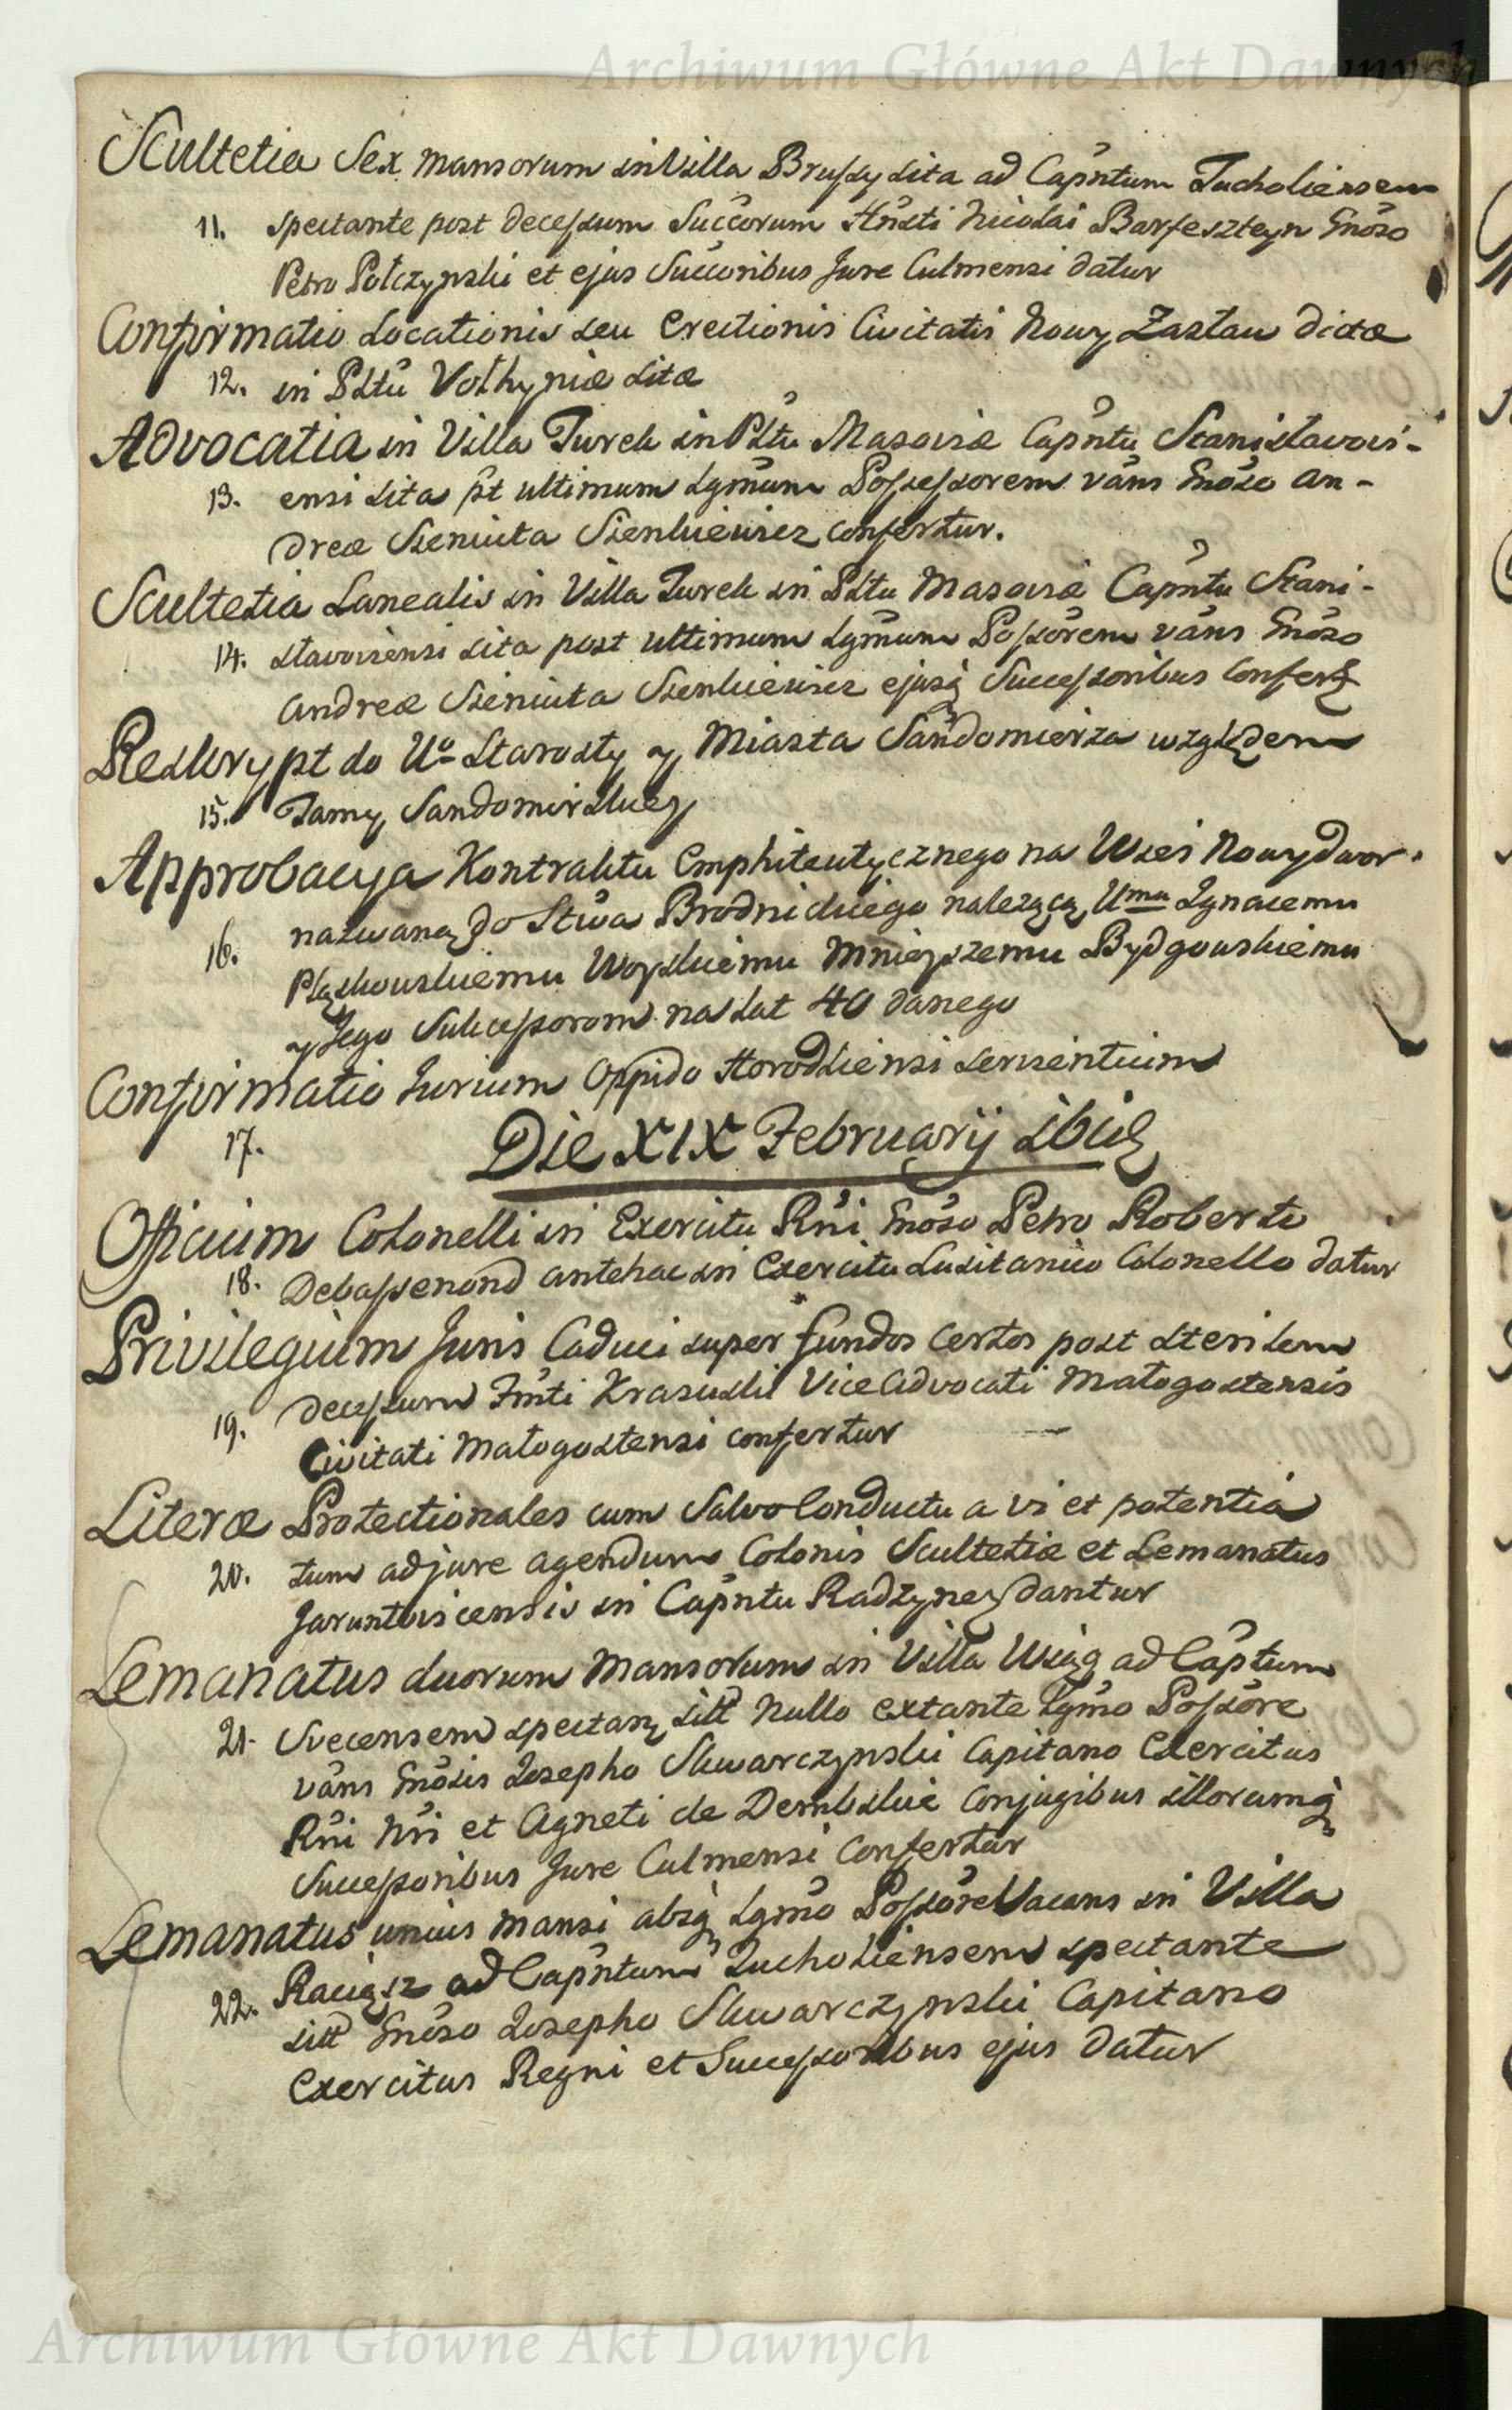 Archiwum Główne Akt Dawnych
Scultetia Sex Mansorum in Villa Brussy sita ad Capntum Tucholiensem
11. spectante post decessum Succorum Hnsti Nicolai Barfeszteyn Gnoso
Petro Połczynski et ejus Succoribus Jure Culmensi datur
Confirmatio Locationis seu Erectionis Civitatis Nowy Zasław dictæ
12. in Pltu Volhyniæ sitæ
Advocatia in Villa Turek in Pltu Masoviæ Capntu Stanisławovi-
13. ensi sita pt ultimum Lgmum Possessorem vans Gnoso An-
dreæ Sieniuta Sienkiewicz confertur.
Scultetia Lanealis in Villa Turek in Pltu Masoviæ Capntu Stani-
14. sławoviensi sita post ultimum Lgmum Possorem vans Gnoso
Andreæ Sieniuta Sienkiewicz ejusq Successoribus Confert
Reskrypt do Uo Starosty y Miasta Sandomierza względem
15. Tamy Sandomirskiey
Approbacya Kontraktu Emphiteutycznego na Wsei Nowydwor
16. nazwaną do Stwa Brodnickiego nalezącą Umu Ignacemu
Pląskowskiemu Woyskiemu Mnieyszemu Bydgowskiemu
y Jego Sukcessorom na Lat 40 danego
Confirmatio Jurium Oppido Horodliensi servientium
17.
Die XIX Februarij ibid
Officium Colonelli in Exercitu Rni Gnoso Petro Roberti
18. Debassenond antehac in Exercitu Lusitanico Colonello datur
Privilegium Juris Caduci super fundos certos post sterilem
19. decessum Fmti Krasuski Vice Advocati Małogostensis
Civitati Małogostensi confertur
Literæ Protectionales cum Salvo Conductu a vi et potentia
20. tum ad jure agendum Colonis Scultetiæ et Lemanatus
Jaruntovicensis in Capntu Radzyney dantur
Lemanatus duorum Mansorum in Villa Wiąg ad Captum
21. Svecensem spectan sitt Nullo extante Lgmo Possore
vans Gnosis Josepho Skwarczynski Capitano Exercitus
Rni Nri et Agneti de Dembskie Conjugibus illorumq
Successoribus Jure Culmensi Confertur
Lemanatus unius Mansi absq Lgmo Possore Vacans in Villa
22. Raciąsz ad Capntum Tucholiensem spectante
sitt Gnoso Josepho Skwarczynski Capitano
Exercitus Regni et Successoribus ejus datur
Archiwum Główne Akt Dawnych